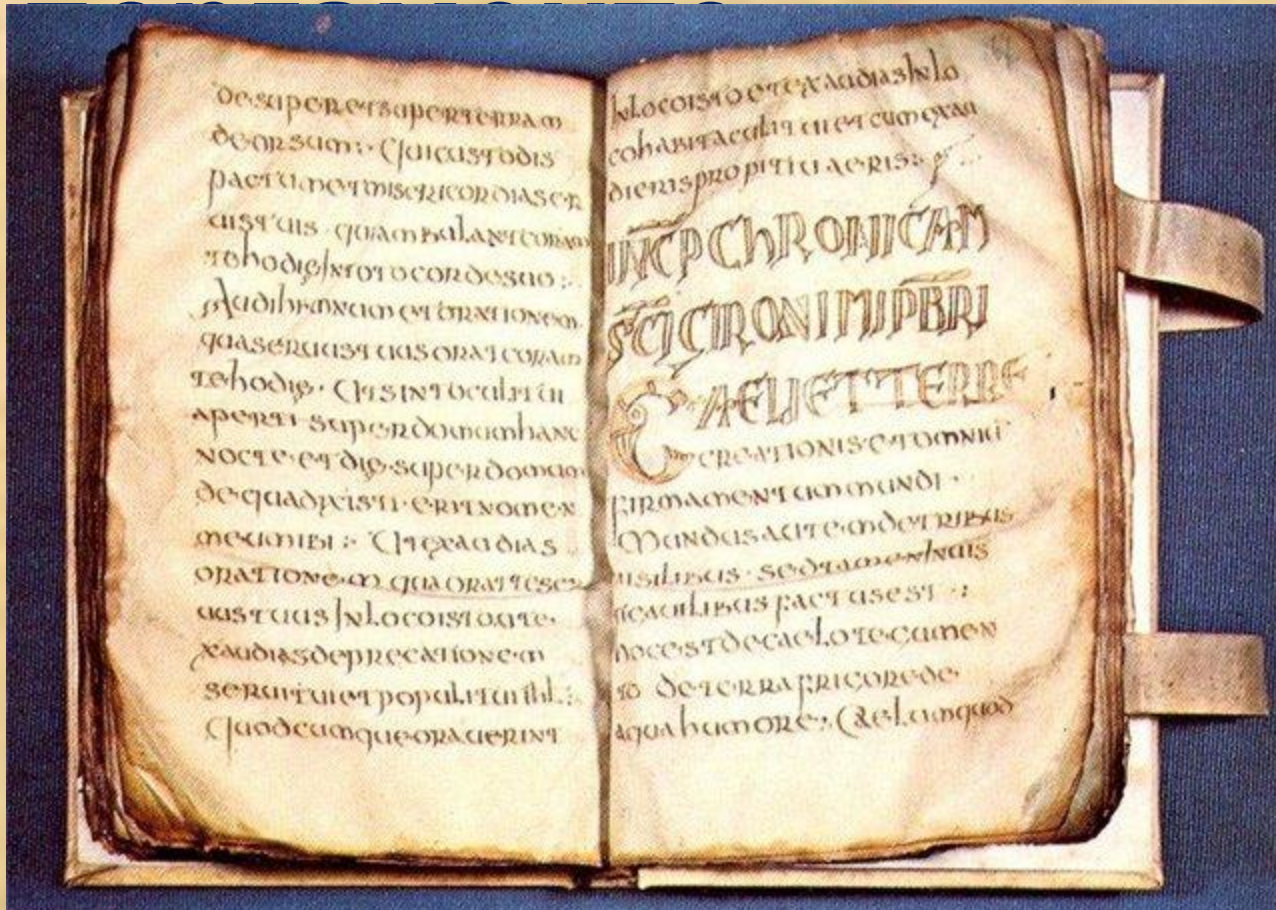 desuperetsuperterram
deorsum:· Quicustodis
pactumetmisericordiaser
uistuis· quiambulantcoram
tehodie intotocordesuo:·
Audihymnum etorationem
quaseruustuusoratcoram
tehodie· Utsintoculitui
aperti·superdomumhanc
nocte·etdie·superdomum
dequadixisti·eritnomen
meumibi:· Utexaudias
orationem quaorattese
uustuus inlocoisto·ute·
xaudiasdeprecationem
seruituietpopulituihl:·
Quodcumqueorauerint
inlocoistoetexaudiasinlo
cohabitaculituietcumexau
dierispropitiuaeris:·
INCPCHRONICAM
SCIGIRONIMIPBRI
CAELIETTERRE
CREATIONIS·etomne
firmamentummundi·
Mundusautemdetribus
uisilibus·sedtameninuis
factusest·:
hocestdecaelotecumen
to deterrafrigorede
aquahumore:· Caelumquod